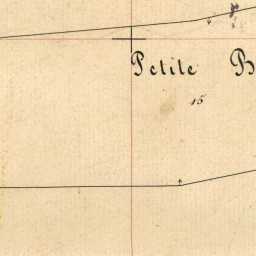 Petite B
15